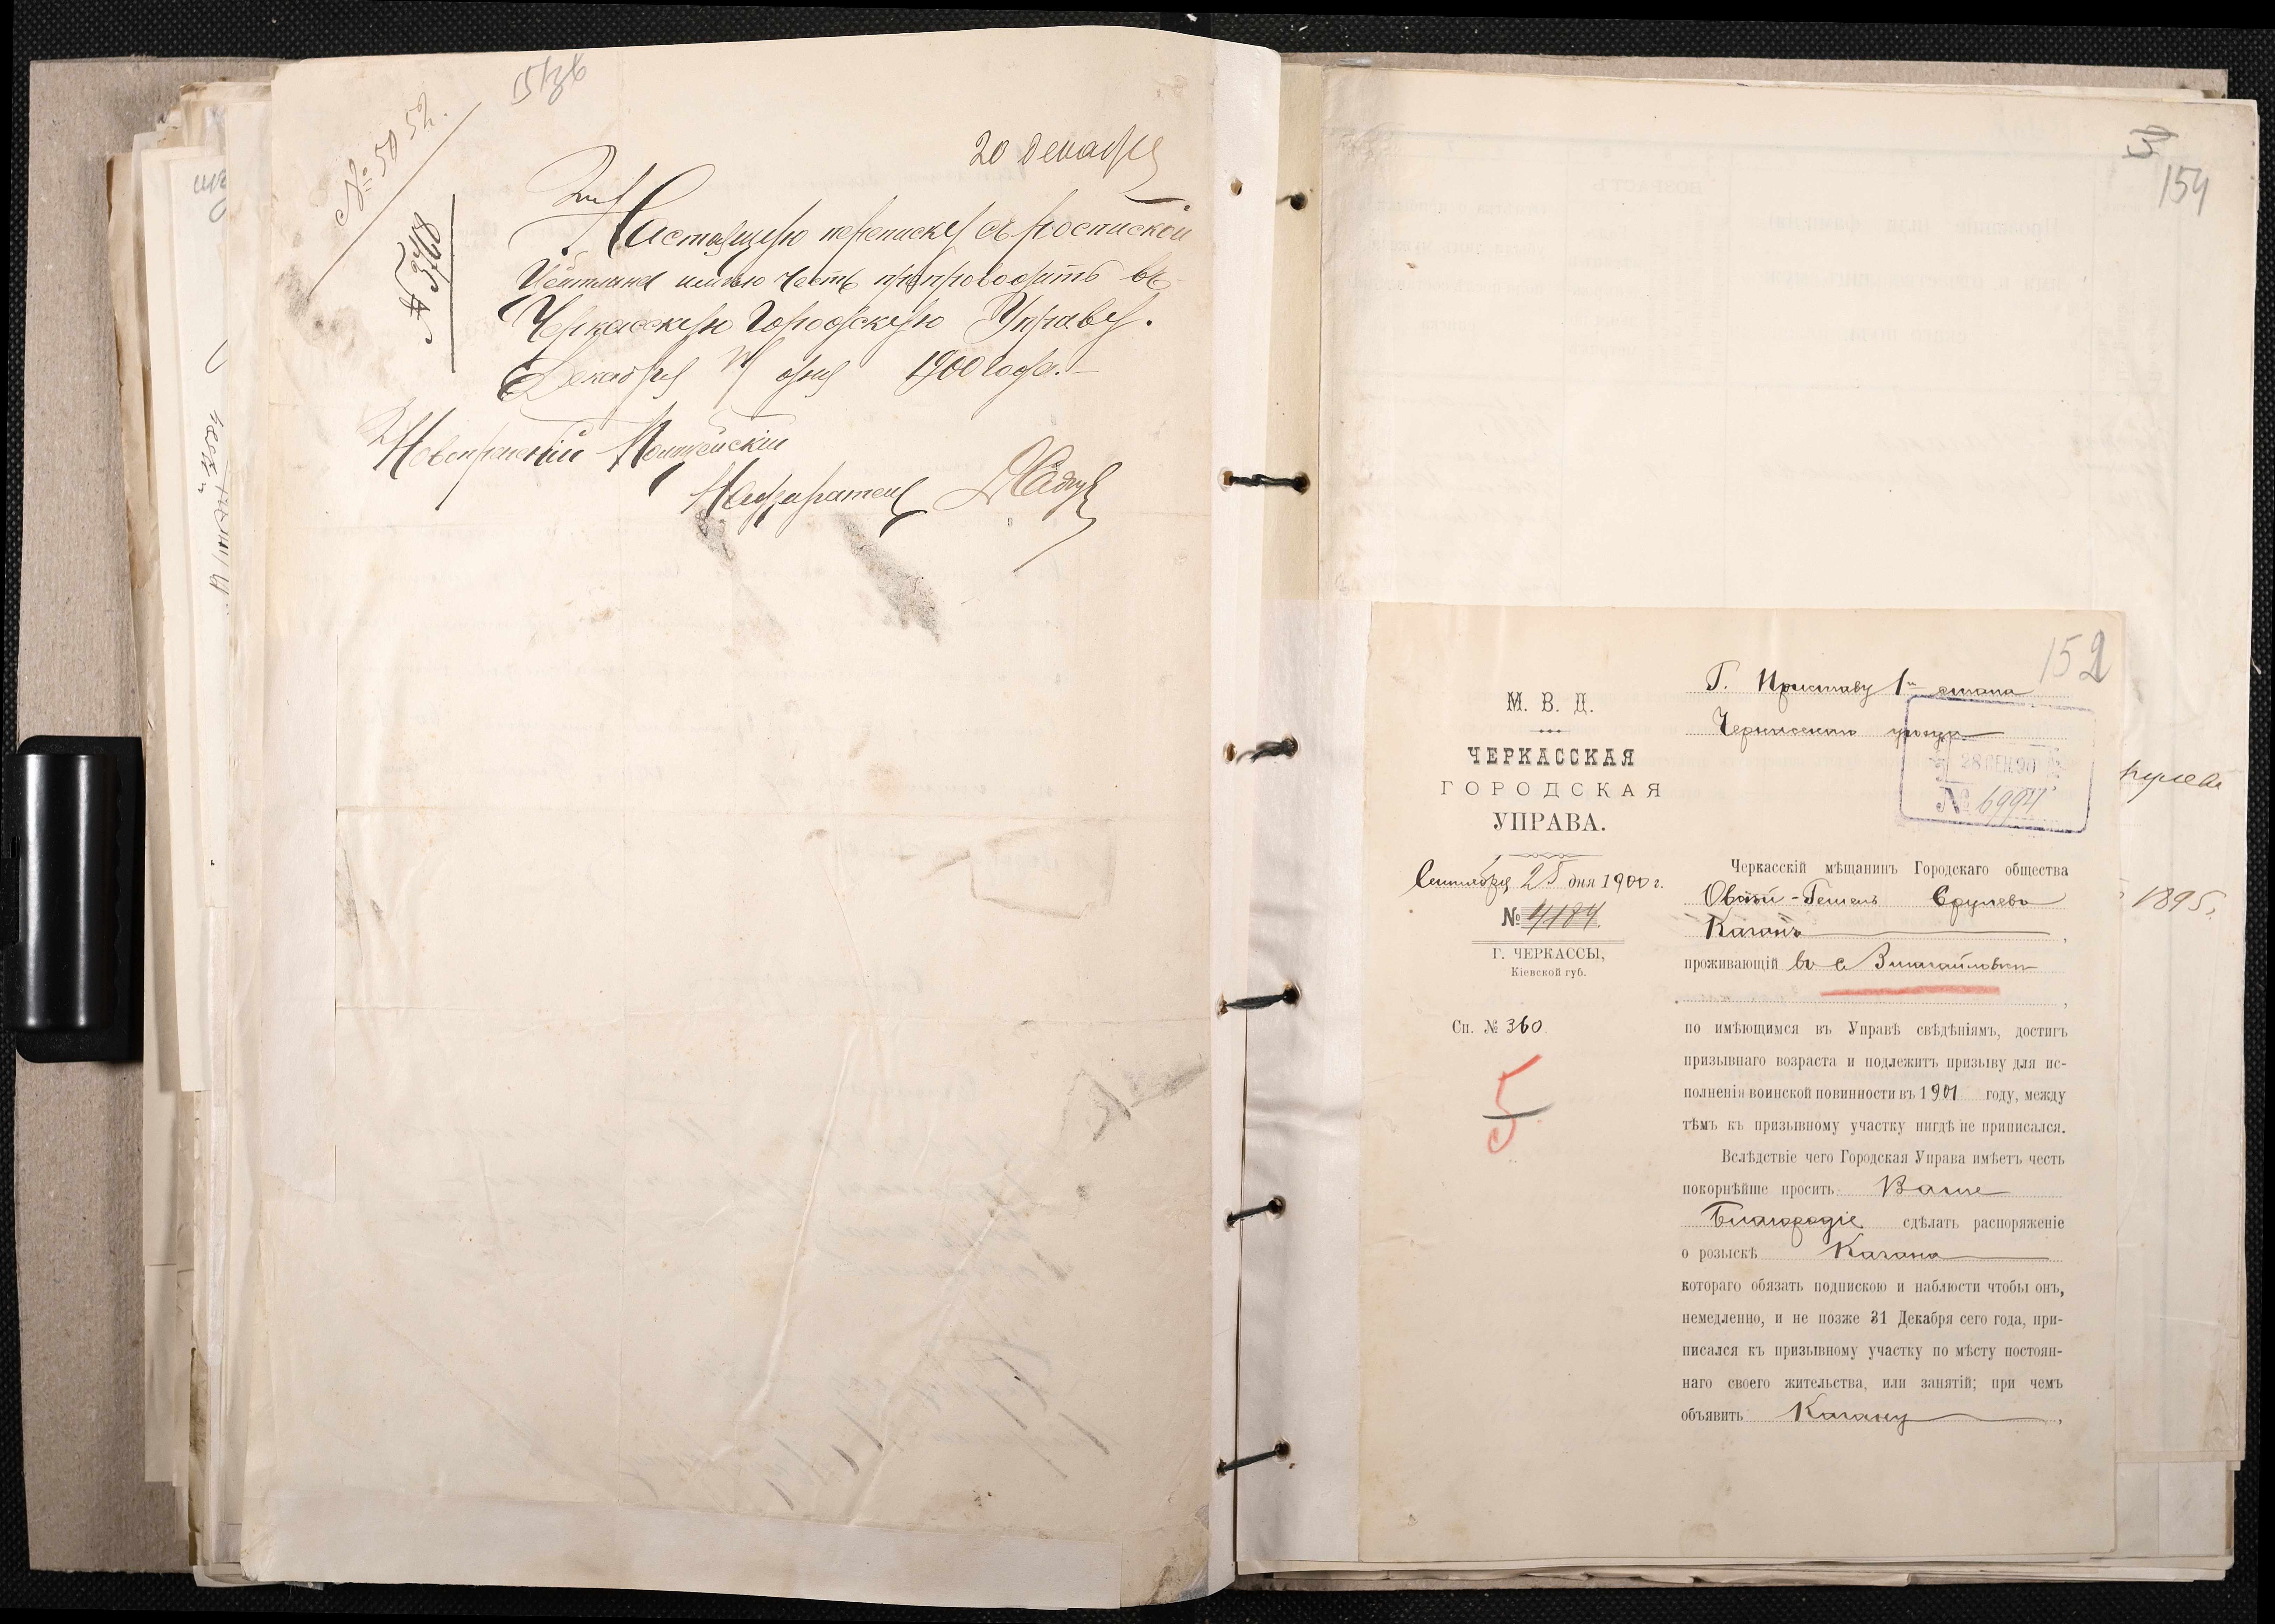 № 5052.
20 Декабря
№ 3768
Настоящую переписку съ роспиской
имѣю честь препроводить въ
Черкасскую Городскую Управу.
Декабря дня 1900 года.
Полицейскій
Надзиратель
154
152
Г. Приставу 1го стана
Черкасскаго уѣзда
М. В. Д.
ЧЕРКАССКАЯ
ГОРОДСКАЯ
УПРАВА.
28 СЕН. 90
№ 6994
Сентября 25 дня 1900 г.
№ 4184.
Г. ЧЕРКАССЫ,
Кіевской губ.
Сп. № 360
5
Черкасскій мѣщанинъ Городскаго общества
Овсѣй-Гешель Срулевъ
Каганъ,
проживающій въ с Змагайловкѣ
,
по имѣющимся въ Управѣ свѣдѣніямъ, достигъ
призывнаго возраста и подлежитъ призыву для ис-
полненія воинской повинности въ 1901 году, между
тѣмъ къ призывному участку нигдѣ не приписался.
Вслѣдствіе чего Городская Управа имѣетъ честь
покорнѣйше просить Ваше
Благородіе сдѣлать распоряженіе
о розыскѣ Кагана
котораго обязать подпискою и наблюсти чтобы онъ,
немедленно, и не позже 31 Декабря сего года, при-
писался къ призывному участку по мѣсту постоян-
наго своего жительства, или занятій; при чемъ
объявить Кагану,
1895